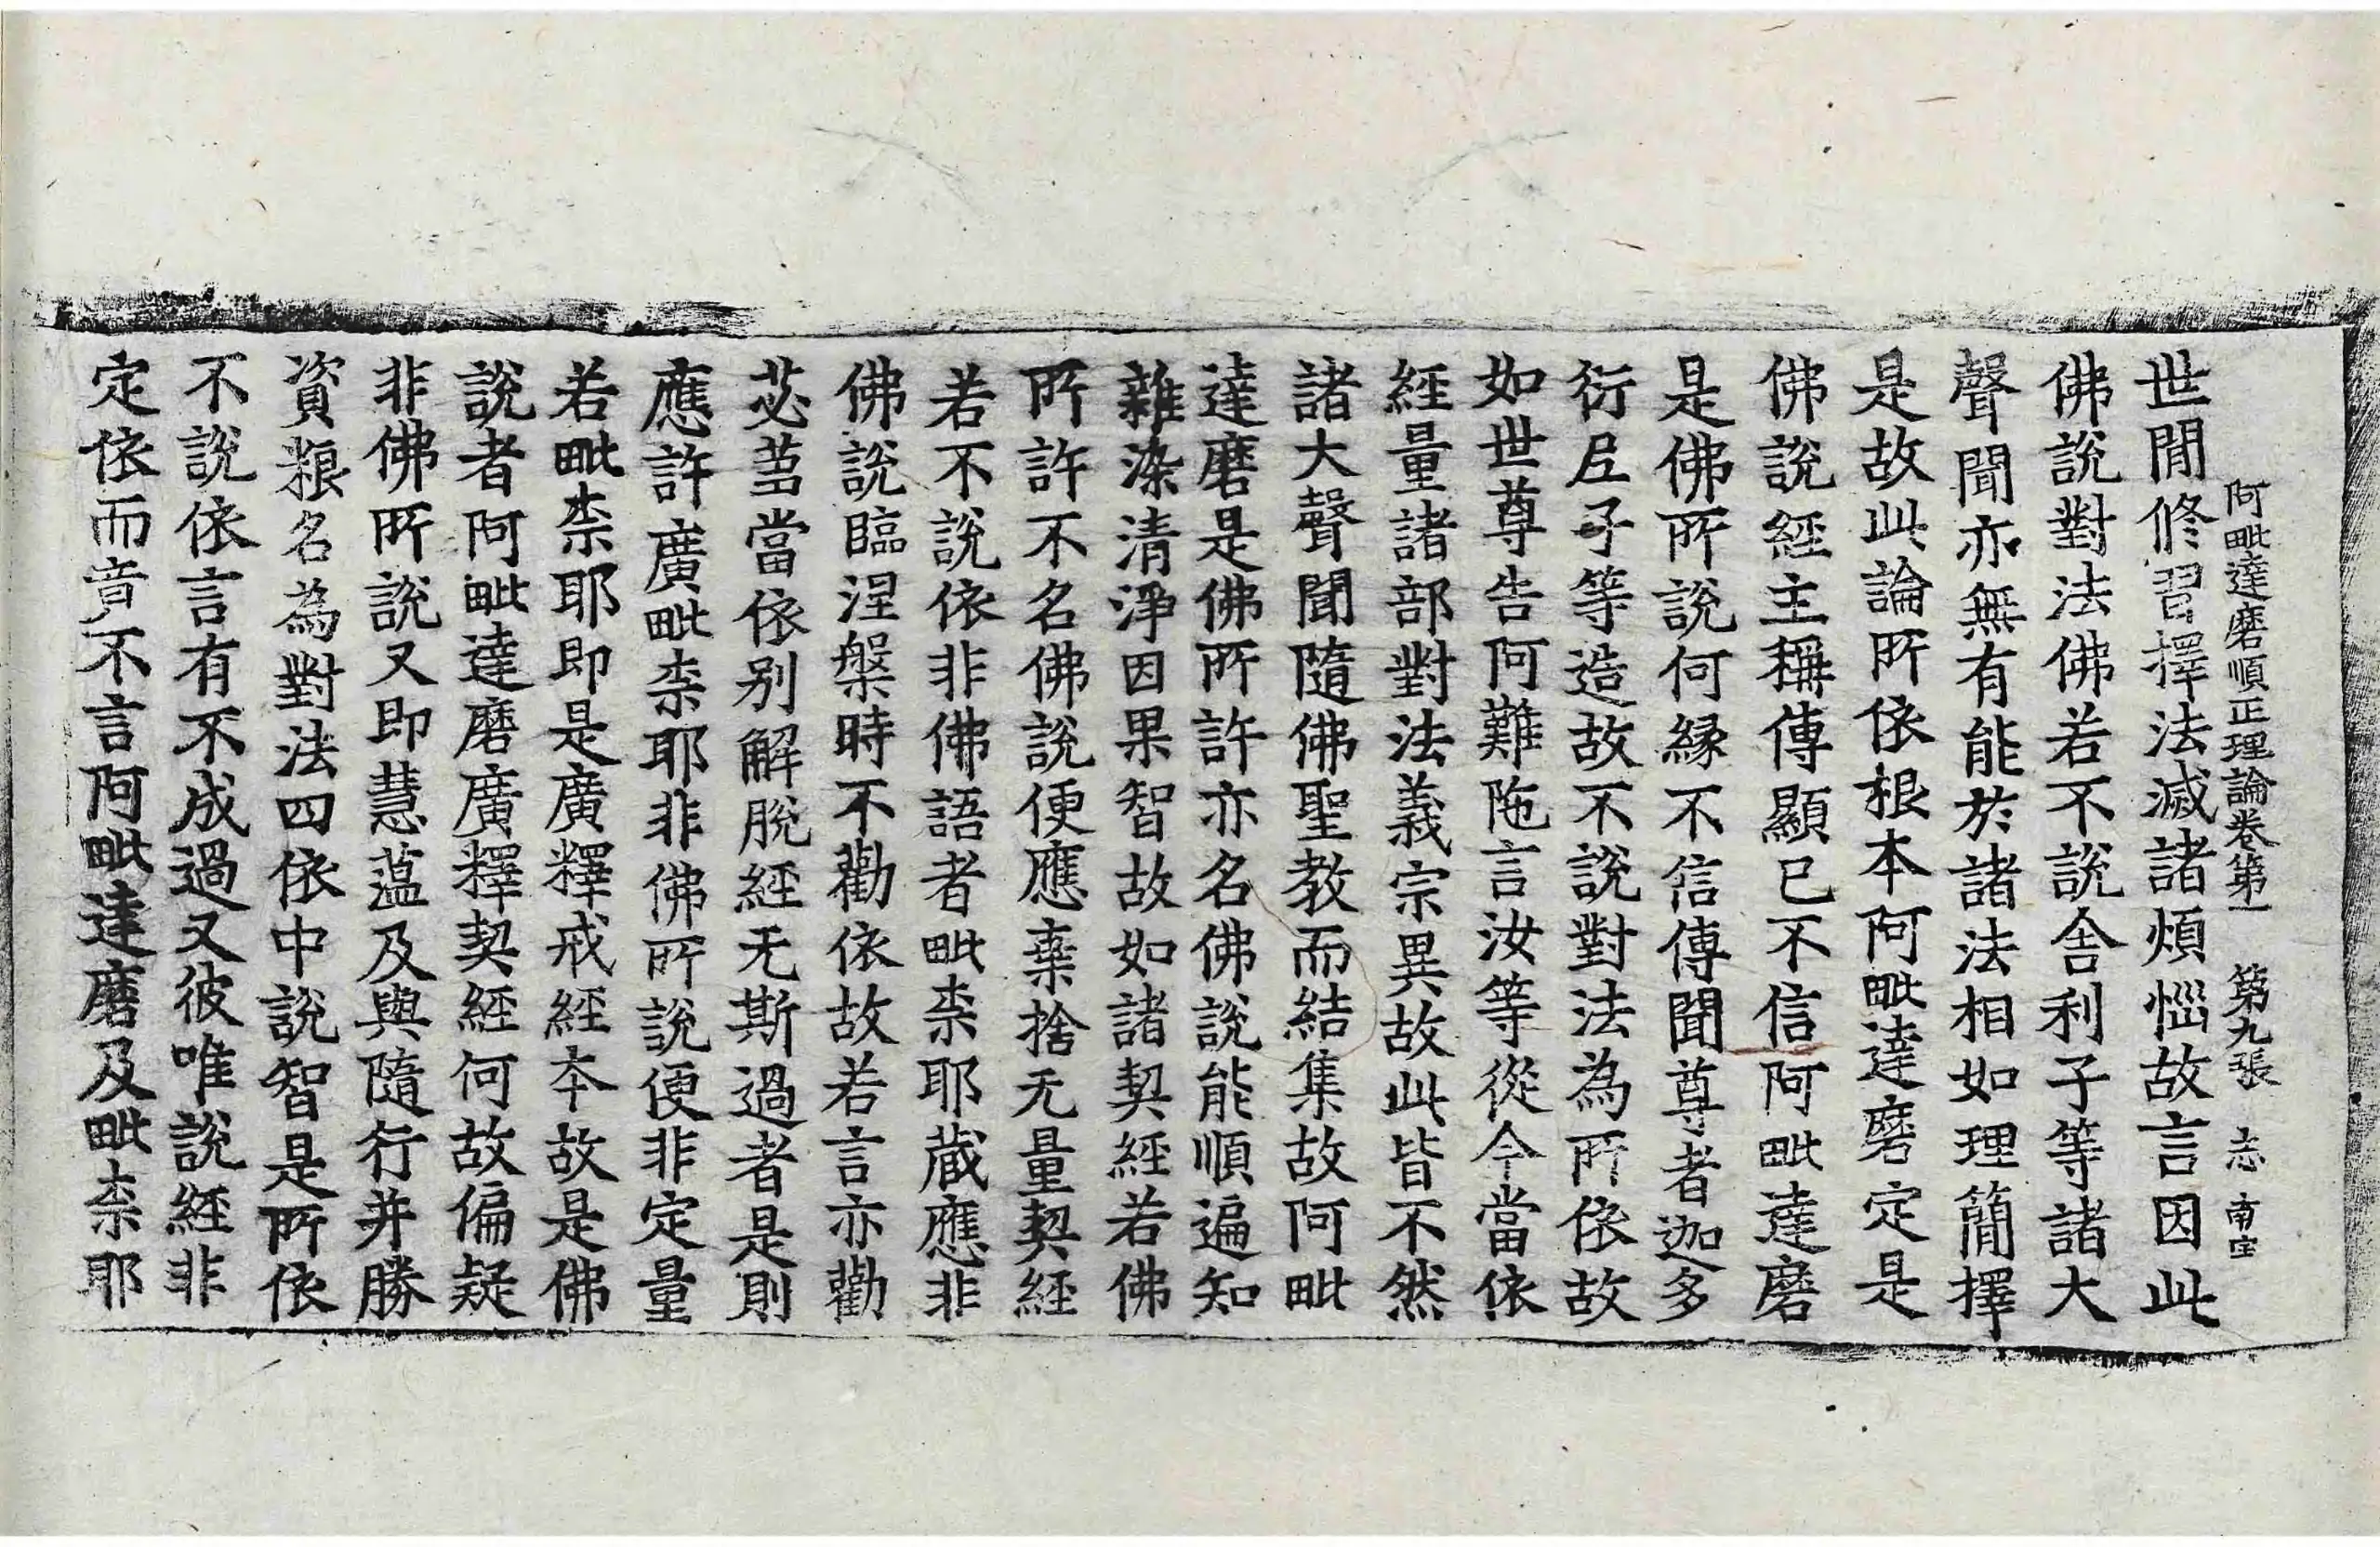 阿毗達磨順正理論卷第一 第九張 志 南宝
世間修習擇法滅諸煩惱故言因此
佛說對法佛若不說舍利子等諸大
聲聞亦無有能於諸法相如理簡擇
是故此論所依根本阿毗達磨定是
佛說經主稱傳顯已不信阿毗達磨
是佛所說何緣不信傳聞尊者迦多
衍尼子等造故不說對法為所依故
如世尊告阿難陁言汝等從今當依
經量諸部對法義宗異故此皆不然
諸大聲聞隨佛聖教而結集故阿毗
達磨是佛所許亦名佛說能順遍知
雜染清淨因果智故如諸契經若佛
所許不名佛說便應棄捨无量契經
若不說依非佛語者毗柰耶蔵應非
佛說臨涅槃時不勸依故若言亦勸
苾蒭當依别解脫經无斯過者是則
應許廣毗柰耶非佛所說便非定量
若毗柰耶即是廣釋戒經本故是佛
說者阿毗達磨廣釋契經何故偏疑
非佛所說又即慧蘊及與隨行并勝
資粮名為對法四依中說智是所依
不說依言有不成過又彼唯說經非
定依而竟不言阿毗達磨及毗柰耶